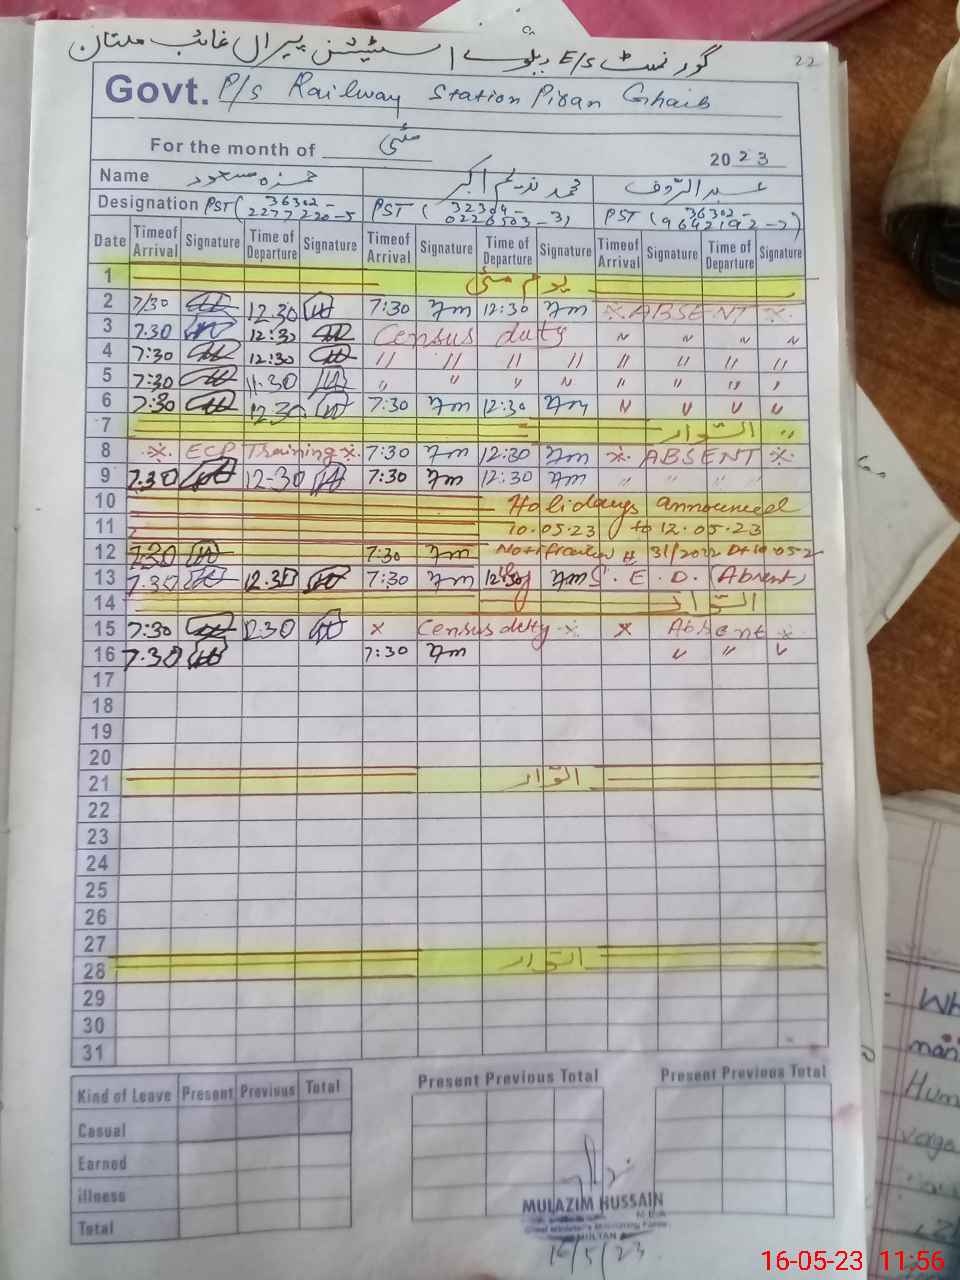 گورنمنٹ E/S ریلوے اسٹیشن پیراں غائب ملتان
22
Govt. P/s Railway Station Piran Ghaib
For the month of مئی 2023
Name حمزہ مسعود محمد ندیم اکبر عبدالرؤف
Designation PST (36302-2277220-5 PST (32304-0226503-3) PST (36302-9642192-7)
Date Timeof Arrival Signature Time of Departure Signature Timeof Arrival Signature Time of Departure Signature Timeof Arrival Signature Time of Departure Signature
1 یوم مئی
2 7/30 12.30 7:30 12:30 ABSENT
3 7.30 12:30 Census duty " " " "
4 7:30 12:30 " " " " " " " "
5 7:30 11.30 " " " " " " " "
6 7:30 12.30 7:30 12:30 " " " "
7 اتوار "
8 ECP Training 7:30 12:30 ABSENT
9 7.30 12-30 7:30 12:30 " " " "
10 Holidays announced
11 10.05.23 to 12.05.23
12 7.30 7:30 Notification # 31/2022 Dt 10.05.2
13 7.30 12.30 7:30 12:30 S.E.D. (Absent)
14 اتوار
15 7:30 12:30 × Census duty × Absent
16 7.30 7:30 " " "
17
18
19
20
21 اتوار
22
23
24
25
26
27
28 اتوار
29
30
31
Kind of Leave Present Previous Total Present Previous Total Present Previous Total
Casual
Earned
illness
Total
MULAZIM HUSSAIN
M.E.A
Chief Minister's Monitoring Force
MULTAN
16/5/23
16-05-23 11:56
Wh
man
Hum